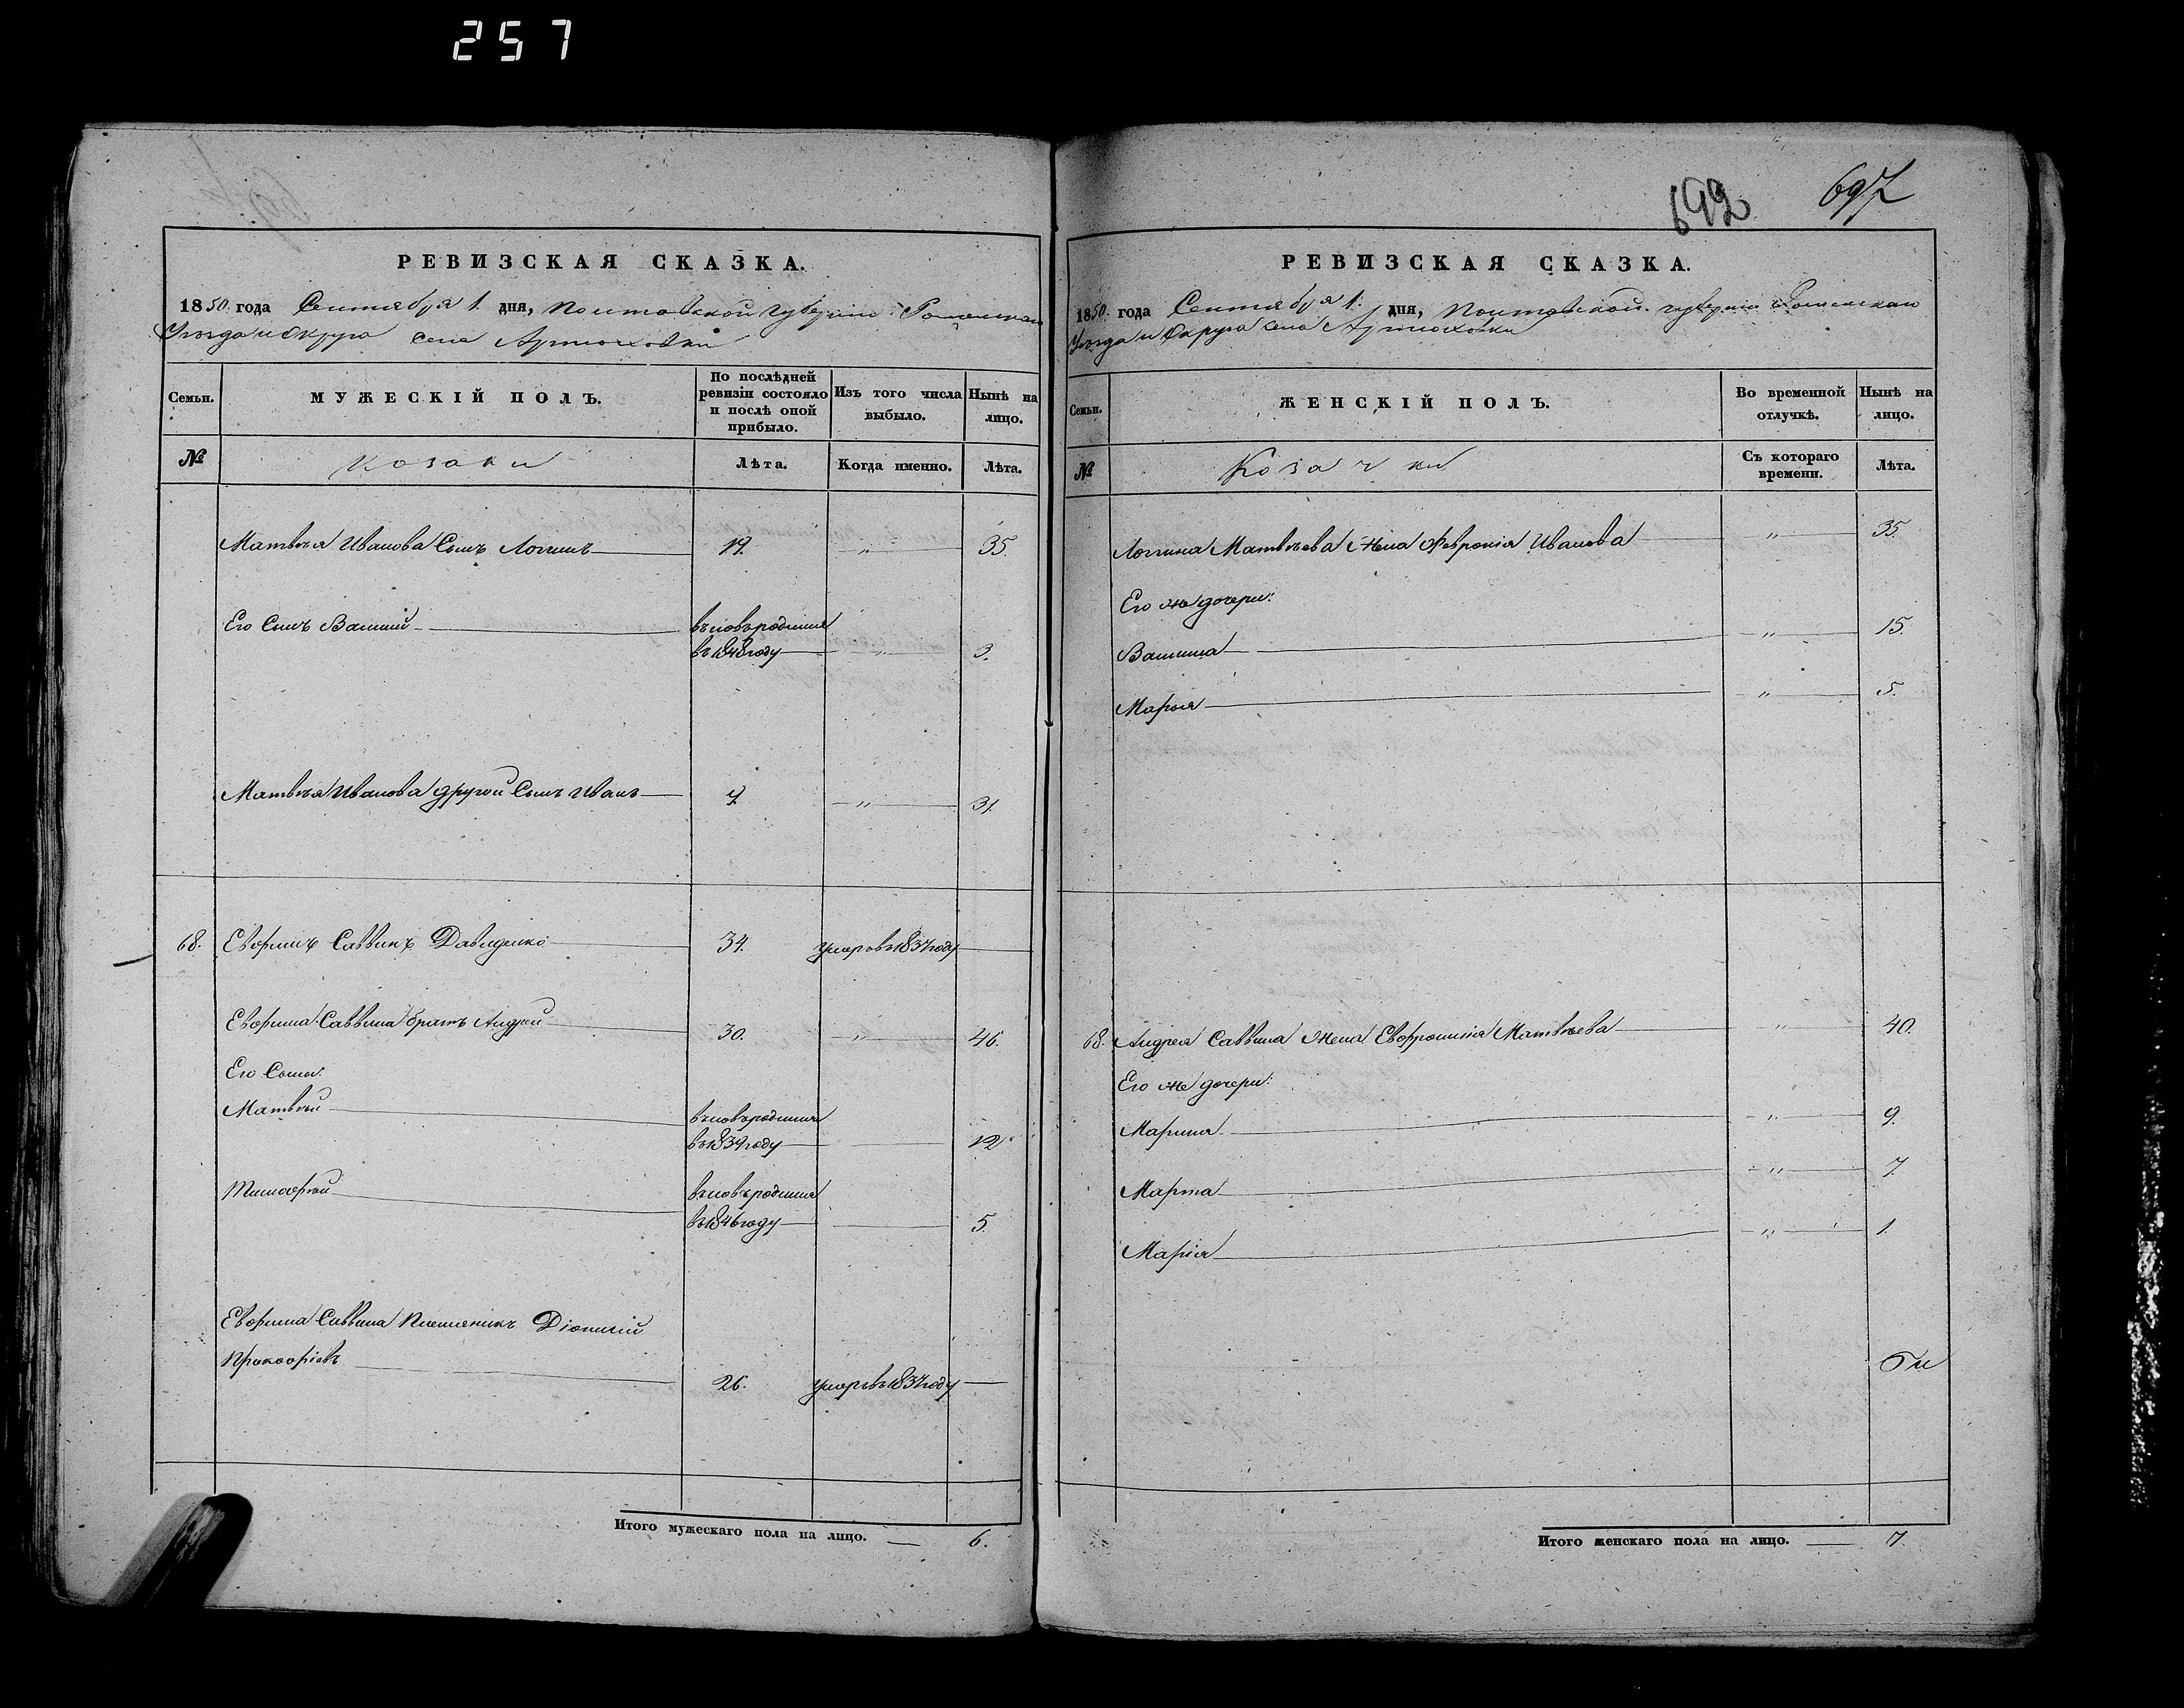 257
692 697
РЕВИЗСКАЯ СКАЗКА.
1850 года Сентября 1. дня, Полтавской губернии Роменскаго
Уѣзда и Округа села Артюховки
Семьи. МУЖЕСКІЙ ПОЛЪ. По послѣдней ревизіи состояло и послѣ оной прибыло. Изъ того числа выбыло. Нынѣ на лицо.
№ Козаки Лѣта. Когда именно. Лѣта.
Матвѣя Иванова Сынъ Логинъ 19. „ 35.
Его Сынъ Василій вновьродился
въ 1848 году „ 3.
Матвѣя Иванова другой Сынъ Иванъ „ 31.
68. Евфимъ Саввинъ Давиденко 34. умеръ въ 1837 году
Евфима Саввина братъ Андрей 30. „ 46.
Его Сыны:
Матвѣй вновьродился
въ 1839 году 12
Тимофѣй вновьродился
въ 1846 году 5.
Евфима Саввина Племянникъ Діонисій
Прокофіевъ 26. умеръ въ 1837 году
Итого мужескаго пола на лицо. 6.
РЕВИЗСКАЯ СКАЗКА.
1850. года Сентября 1. дня, Полтавской губерніи Роменскаго
Уѣзда и Округа села Артюховки
Семьи. ЖЕНСКІЙ ПОЛЪ. Во временной отлучкѣ. Нынѣ на лицо.
№ Козачки Съ котораго времени. Лѣта.
Логина Матвѣева Жена Февронія Иванова „ 35.
Его же дочери:
Василиса „ 15.
Марья „ 5.
68. Андрея Саввина Жена Евфросинія Матвѣева „ 40.
Его же дочери:
Марина „ 9.
Марта „ 7.
Марія „ 1.
Итого женскаго пола на лицо. 7.